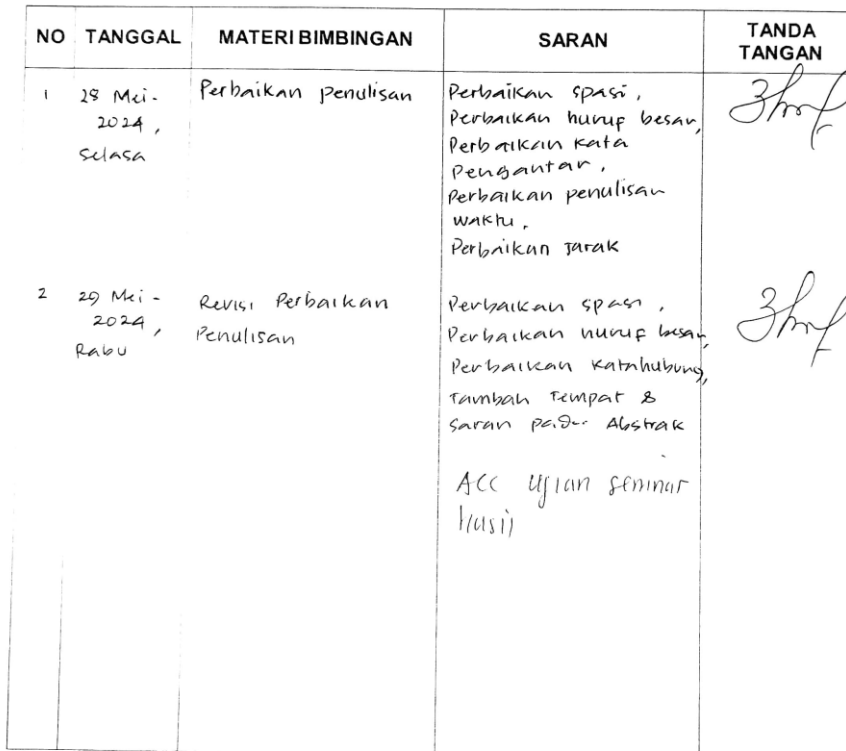 NO TANGGAL MATERI BIMBINGAN SARAN TANDA TANGAN
1 28 Mei - 2024, Selasa
Perbaikan penulisan
Perbaikan spasi,
Perbaikan huruf besar,
Perbaikan kata
Pengantar,
Perbaikan penulisan
waktu,
Perbaikan Jarak
2 29 Mei - 2024, Rabu
Revisi Perbaikan
Penulisan
Perbaikan spasi,
Perbaikan huruf besar,
Perbaikan katahubung,
Tambah Tempat &
Saran pada Abstrak
ACC Ujian Seminar
Hasil